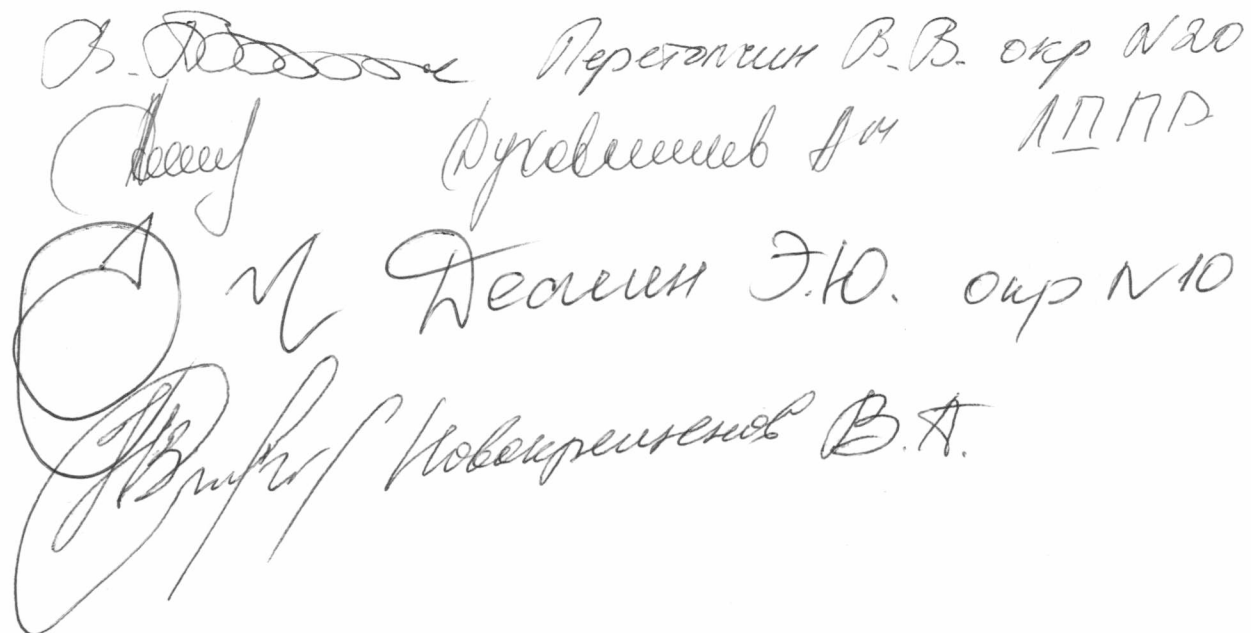 Перетолчин В.В. окр N20
Духовников АМ ЛДПР
Деомин Э.Ю. окр N10
Новокрещенов В.А.